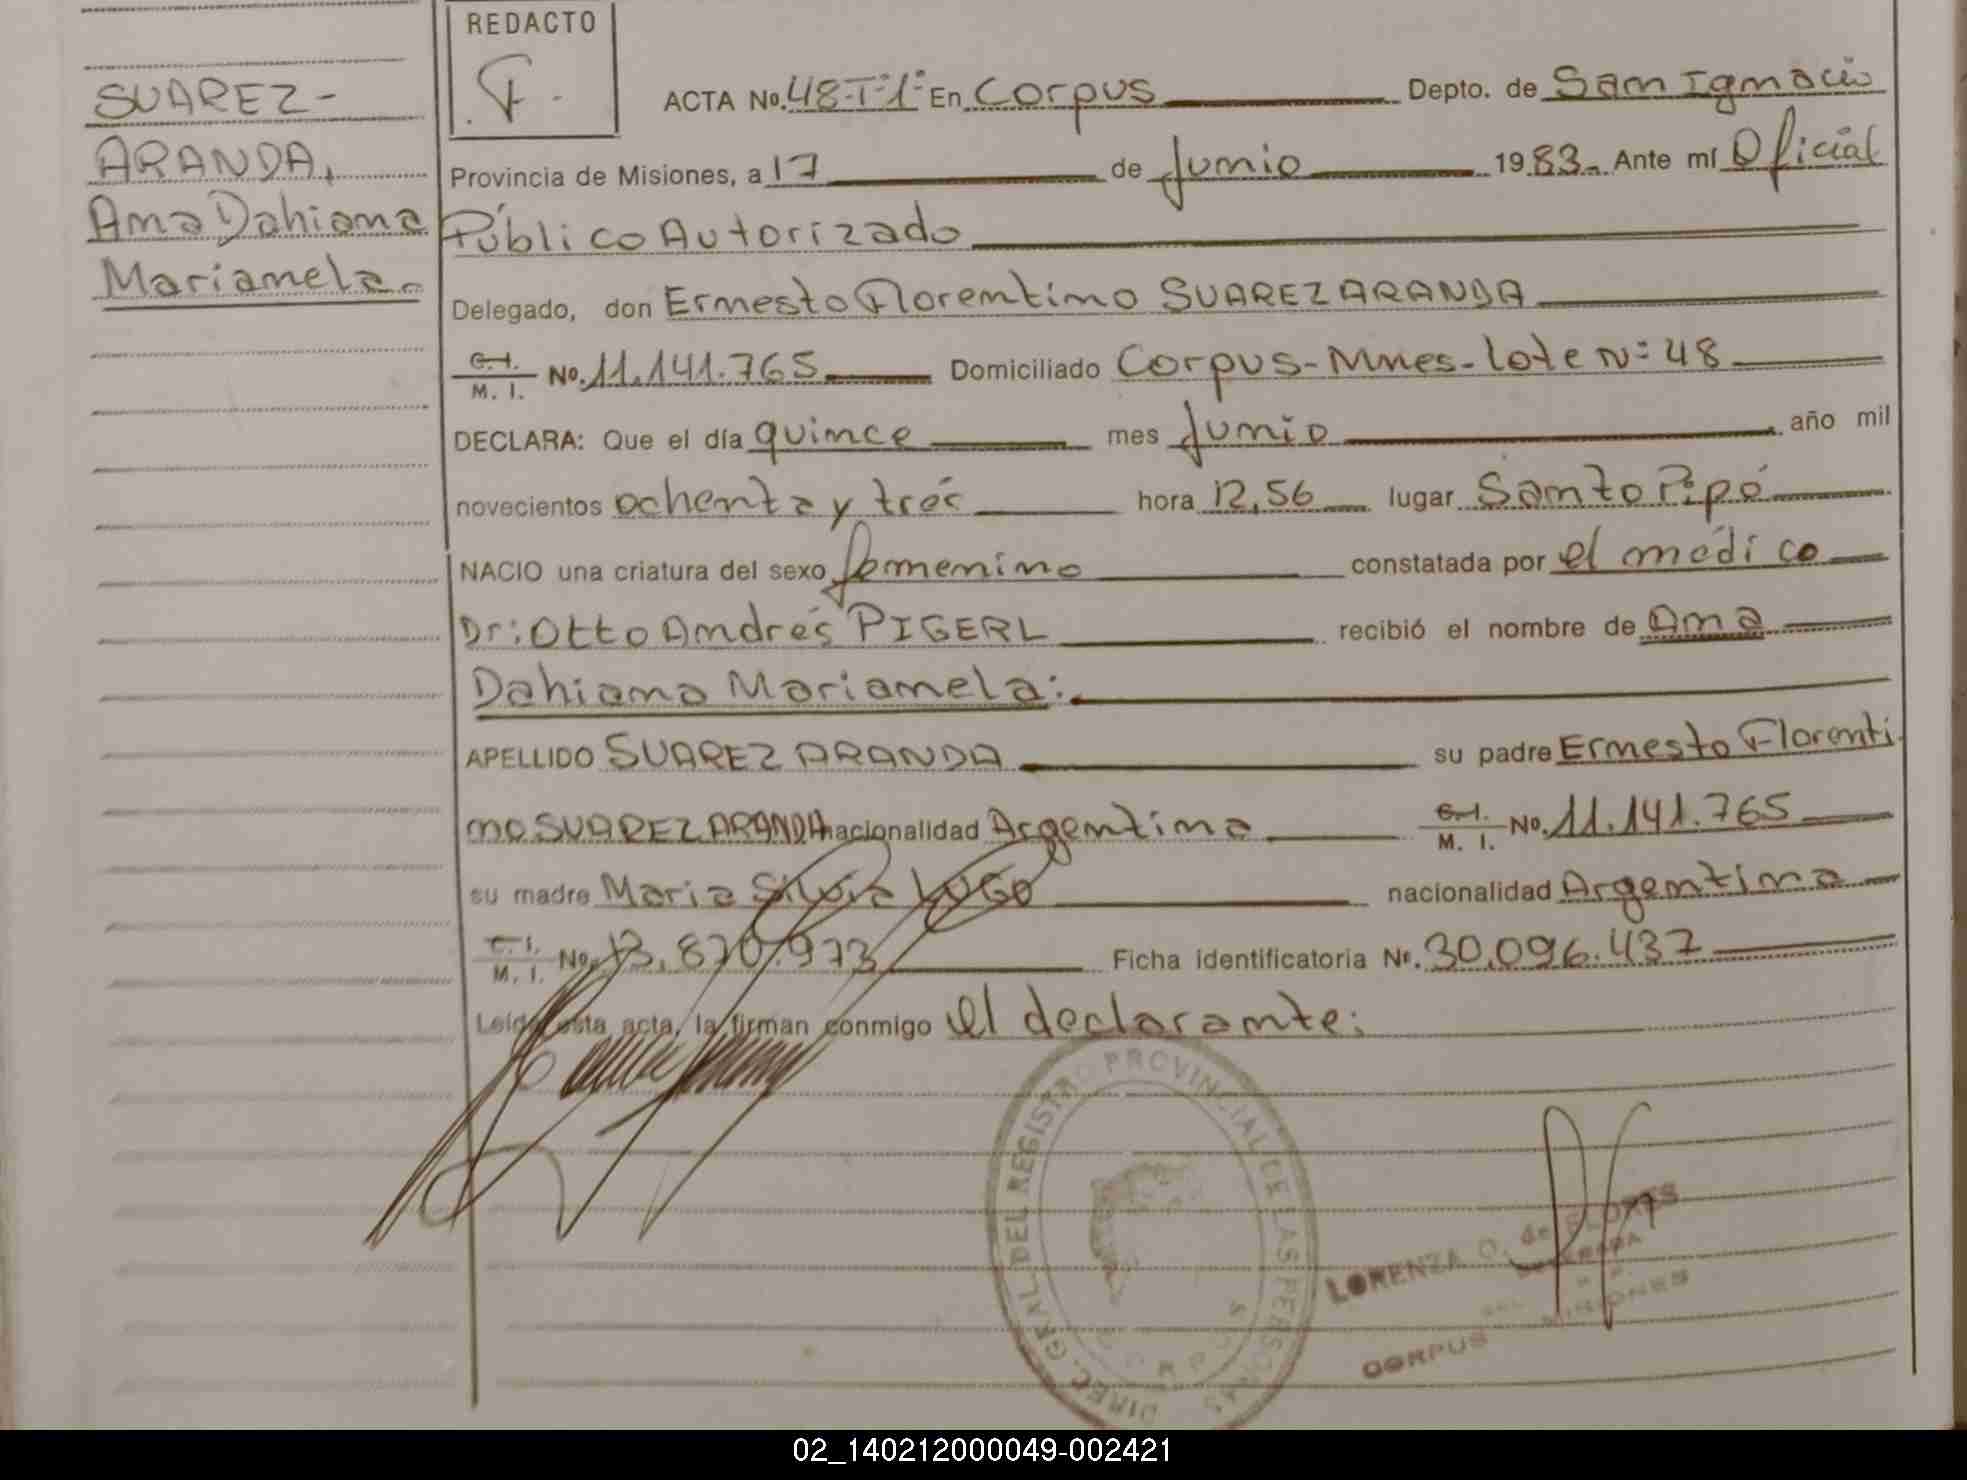 REDACTO
SUAREZ-
ARANDA,
Ana Dahiana
Marianela.
ACTA No. 48-Tº1º En Corpus Depto. de San Ignacio
Provincia de Misiones, a 17 de Junio 1983. Ante mí Oficial
Público Autorizado
Delegado, don Ernesto Florentino SUAREZ ARANDA
C.I. M. I. No. 11.141.765 Domiciliado Corpus-Mnes-lote Nº 48
DECLARA: Que el día quince mes Junio año mil
novecientos ochenta y trés hora 12,56 lugar Santo Pipó
NACIO una criatura del sexo femenino constatada por el médico
Dr: Otto Andrés PIGERL recibió el nombre de Ana
Dahiana Marianela:
APELLIDO SUAREZ ARANDA su padre Ernesto Florenti
no SUAREZ ARANDA nacionalidad Argentina C.I. M. I. No. 11.141.765
su madre Maria Silvia LUGO nacionalidad Argentina
C.I. M. I. No. 13.870.973 Ficha identificatoria Nº. 30.096.437
Leída esta acta, la firman conmigo el declarante:
DIREC. GRAL DEL REGISTRO PROVINCIAL DE LAS PERSONAS
CORPUS
LORENZA O. de FLORES
CORPUS MISIONES
02_140212000049-002421